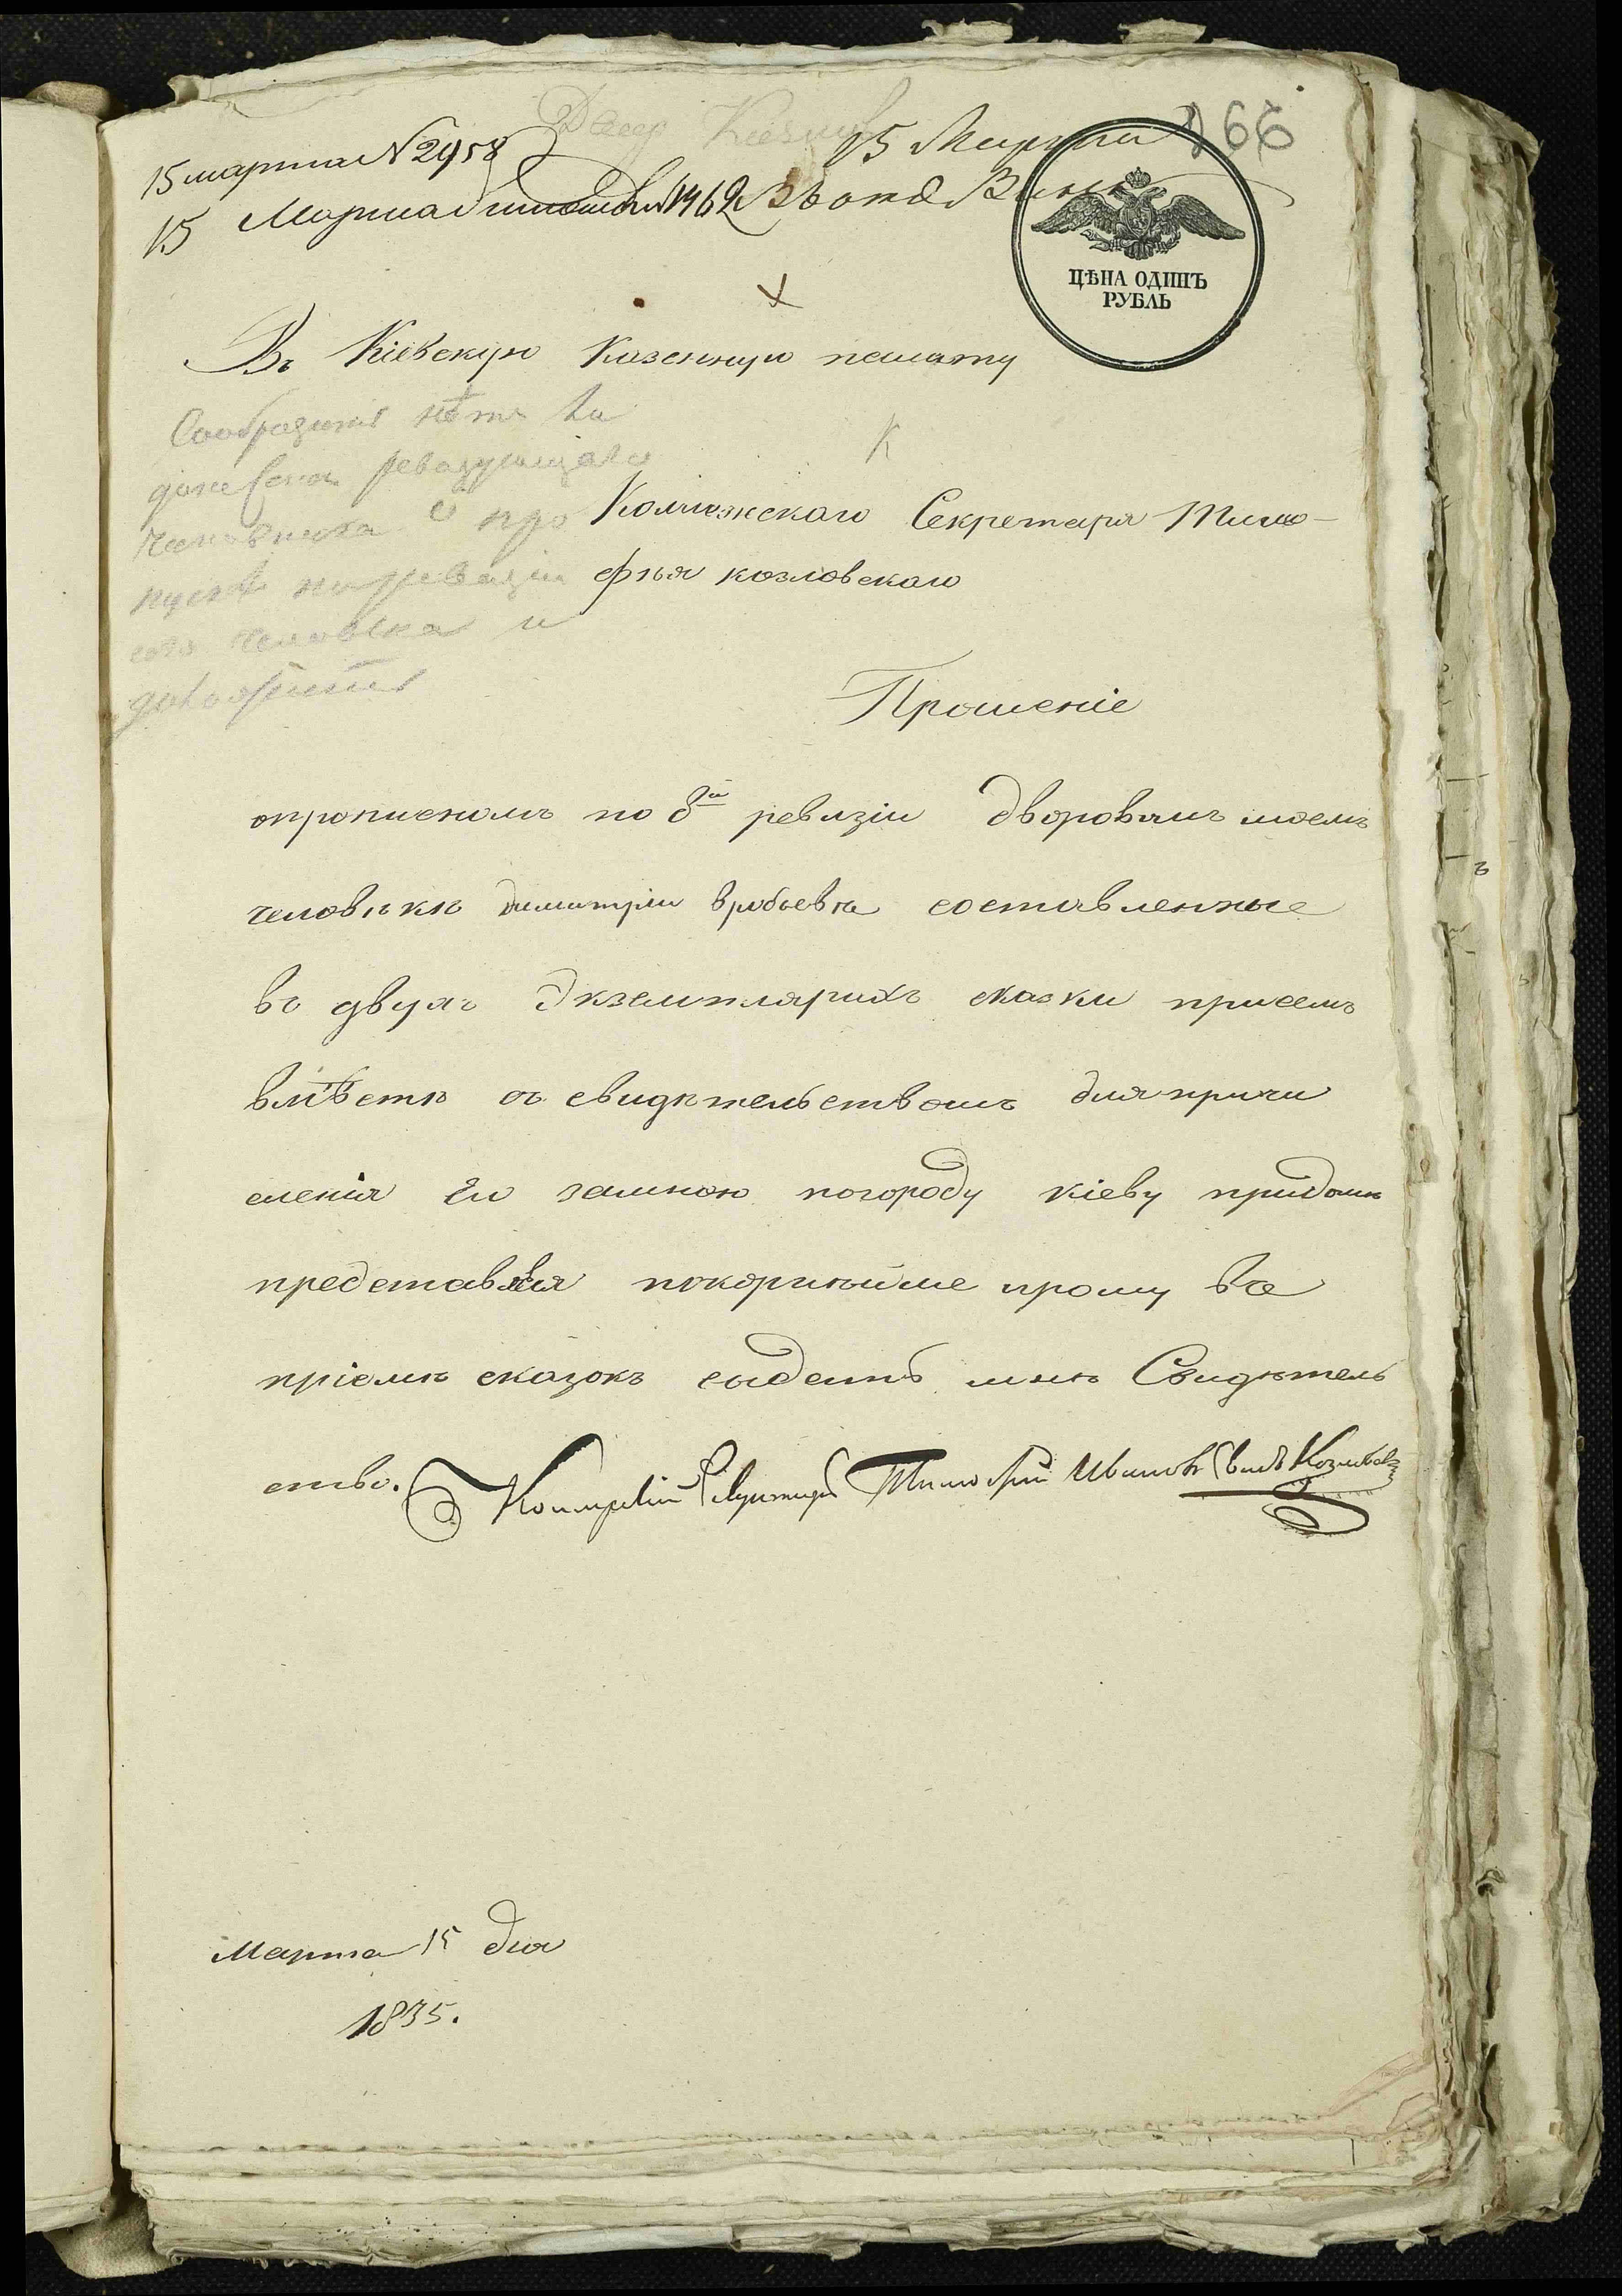 166
15 марта N 2958
15 Марта
15 Марта
1462
ЦѢНА ОДИНЪ
РУБЛЬ
Въ Кіевскую Казенную палату
Сообразить нѣтъ ли
донесенія ревизующаго
чиновника о про
пускѣ по ревизіи
сего человека и
доложить
Коллежскаго Секретаря Тимо-
фѣя козловскаго
Прошеніе
опрописномъ по 8й ревизіи дворовомъ моемъ
человѣкѣ димитріи
составленные
въ двухъ экземплярахъ сказки присемъ
вмѣстѣ съ свидѣтельствомъ для причи
сленія Его замною погороду кіеву придомѣ
представляя покорнѣйше прошу въ
пріемѣ сказокъ мнѣ Свидѣтель
ство. Коллежскій Секретарь Тимофей Ивановъ сынъ Козловскій
Марта 15 дня
1835.